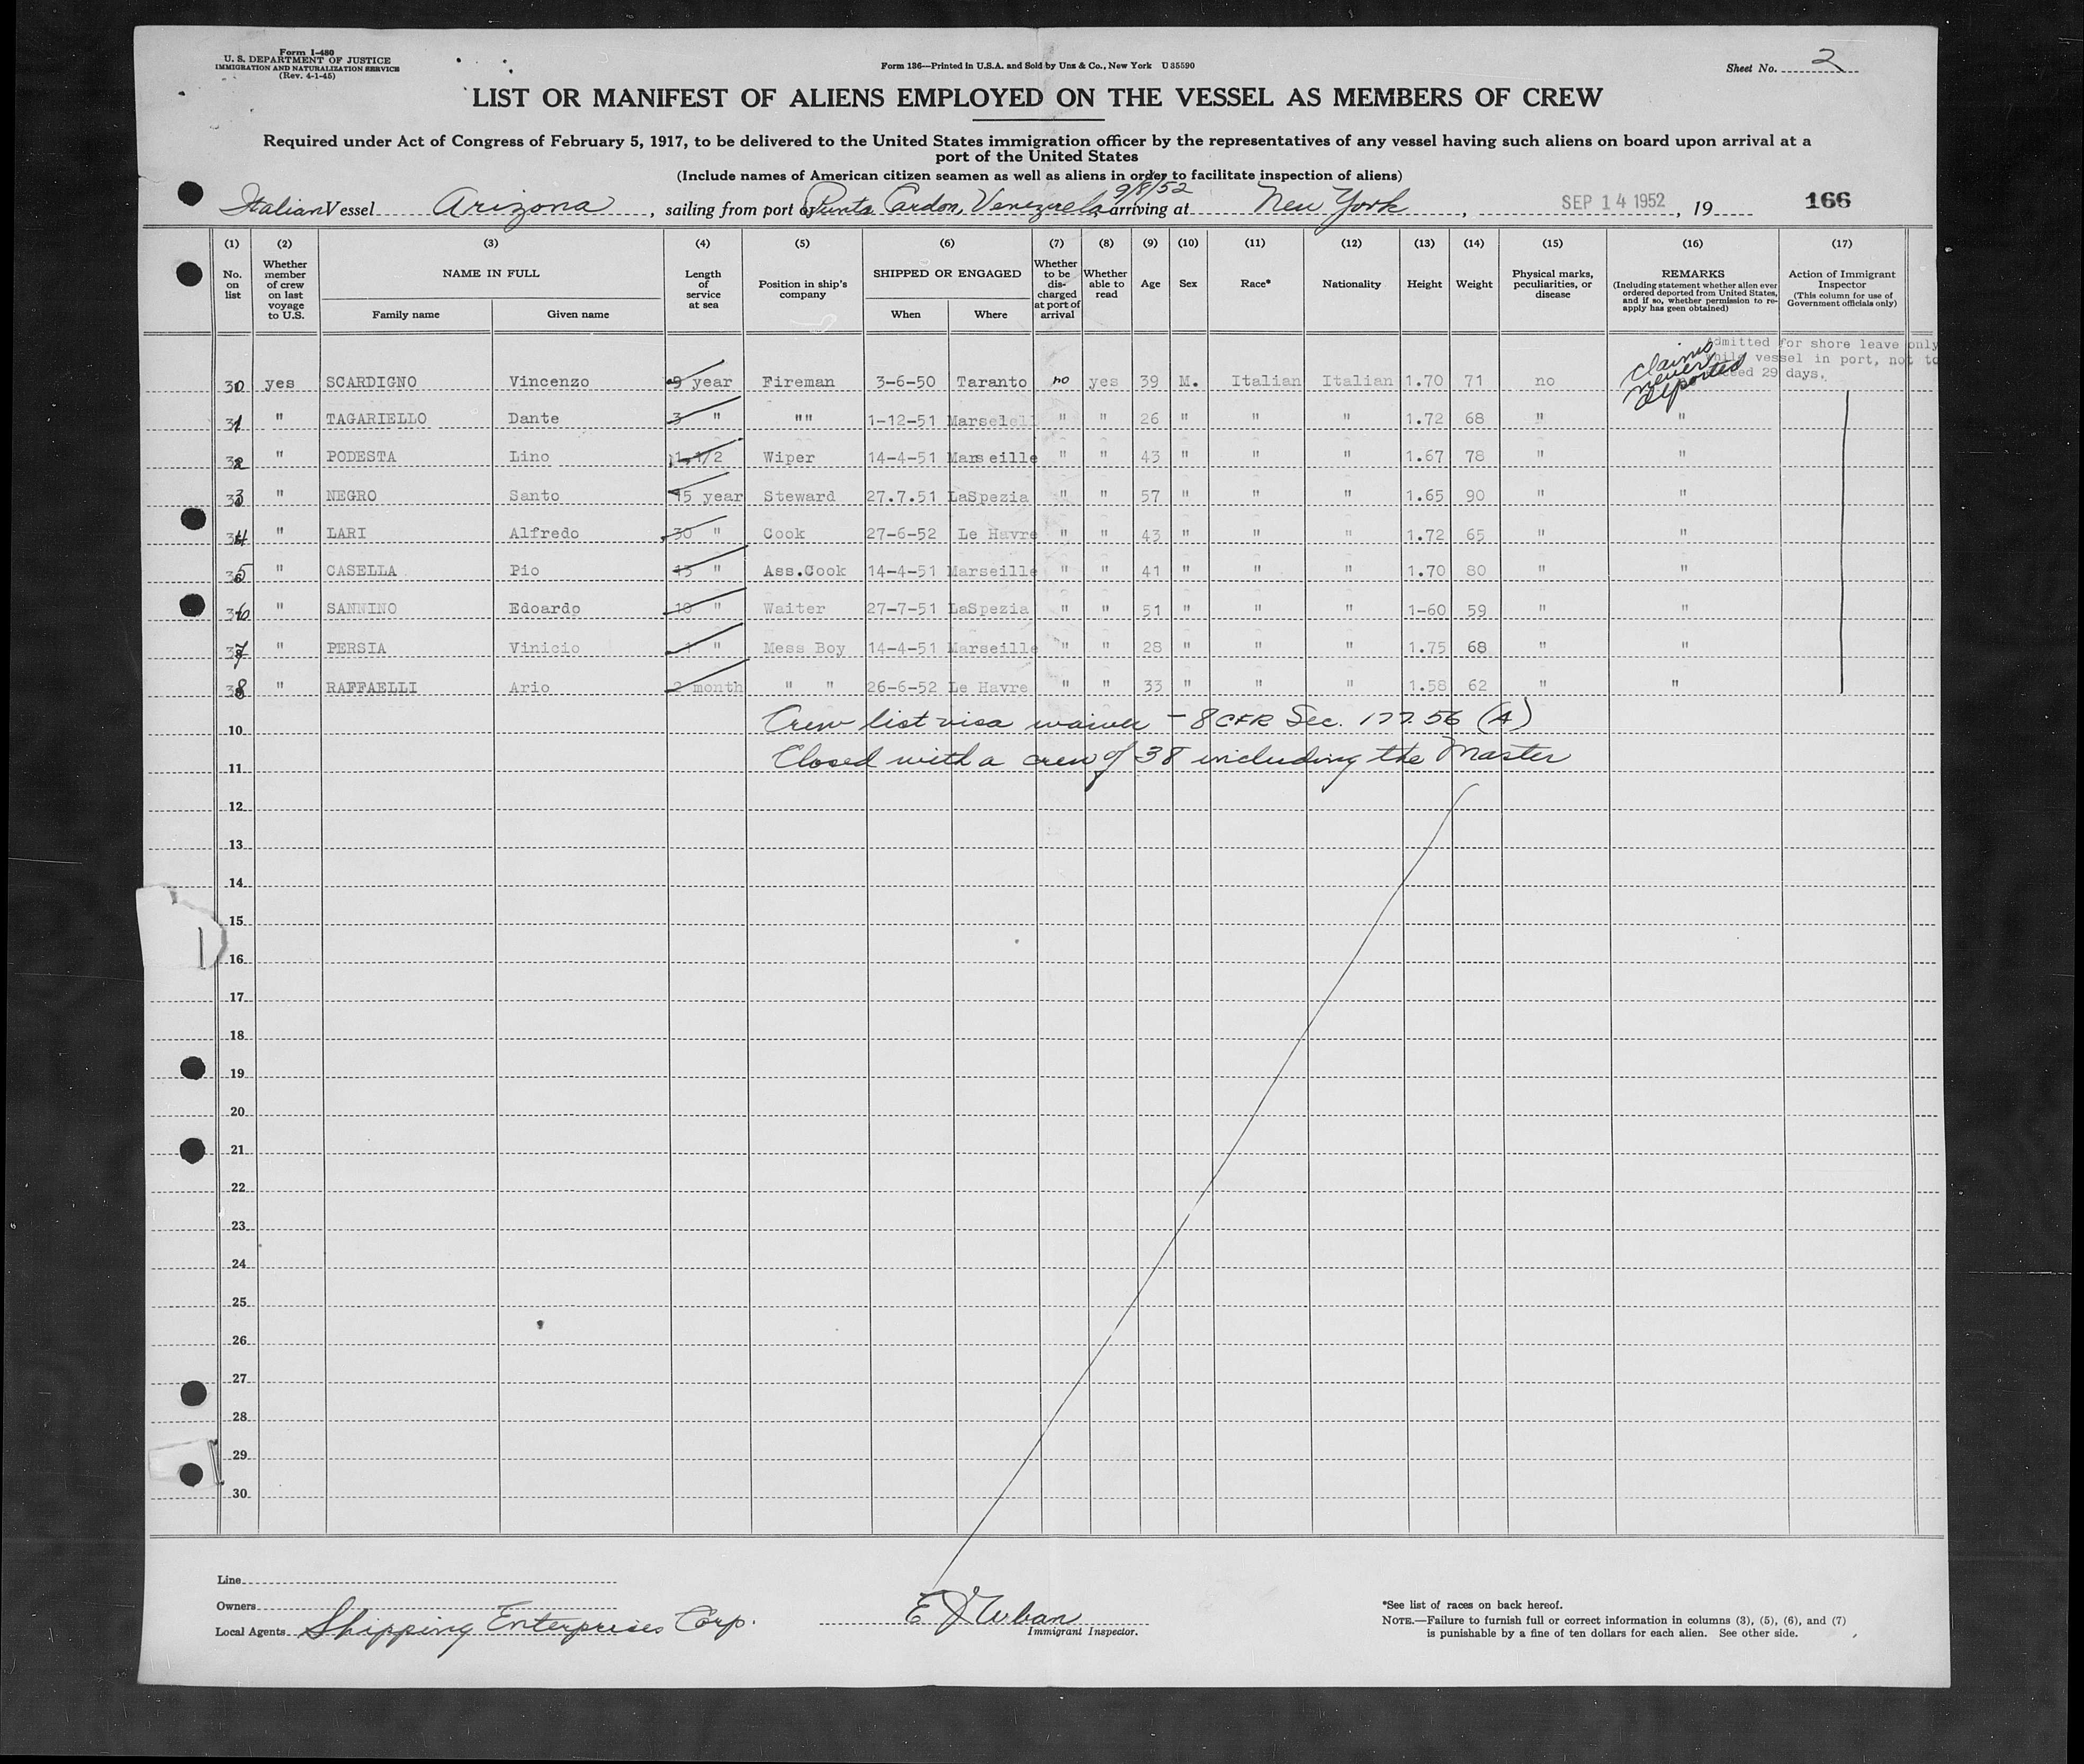 Form I-480
U. S. DEPARTMENT OF JUSTICE
IMMIGRATION AND NATURALIZATION SERVICE
(Rev. 4-1-45)
Form 136—Printed in U.S.A. and Sold by Unz & Co., New York U 35590
Sheet No. 2
LIST OR MANIFEST OF ALIENS EMPLOYED ON THE VESSEL AS MEMBERS OF CREW
Required under Act of Congress of February 5, 1917, to be delivered to the United States immigration officer by the representatives of any vessel having such aliens on board upon arrival at a
port of the United States
(Include names of American citizen seamen as well as aliens in order to facilitate inspection of aliens)
Italian Vessel Arizona, sailing from port of Punta Cardon, Venezuela 9/8/52 arriving at New York, SEP 14 1952, 19 166
(1) (2) (3) (4) (5) (6) (7) (8) (9) (10) (11) (12) (13) (14) (15) (16) (17)
No. on list
Whether member of crew on last voyage to U.S.
NAME IN FULL
Family name
Given name
Length of service at sea
Position in ship's company
SHIPPED OR ENGAGED
When
Where
Whether to be discharged at port of arrival
Whether able to read
Age
Sex
Race*
Nationality
Height
Weight
Physical marks, peculiarities, or disease
REMARKS
(Including statement whether alien ever ordered deported from United States, and if so, whether permission to reapply has geen obtained)
Action of Immigrant Inspector
(This column for use of Government officials only)
Admitted for shore leave only
while vessel in port, not to
exceed 29 days.
30 yes SCARDIGNO Vincenzo 9 year Fireman 3-6-50 Taranto no yes 39 M. Italian Italian 1.70 71 no claims never deported
31 " TAGARIELLO Dante 3 " "" 1-12-51 " " 26 " " " 1.72 68 " "
32 " PODESTA Lino 1,1/2 Wiper 14-4-51 Marseille " " 43 " " " 1.67 78 " "
33 " NEGRO Santo 15 year Steward 27.7.51 LaSpezia " " 57 " " " 1.65 90 " "
34 " LARI Alfredo 30 " Cook 27-6-52 Le Havre " " 43 " " " 1.72 65 " "
35 " CASELLA Pio 13 " Ass.Cook 14-4-51 Marseille " " 41 " " " 1.70 80 " "
36 " SANNINO Edoardo 10 " Waiter 27-7-51 LaSpezia " " 51 " " " 1-60 59 " "
37 " PERSIA Vinicio " Mess Boy 14-4-51 Marseille " " 28 " " " 1.75 68 " "
38 " RAFFAELLI Ario 2 month " " 26-6-52 Le Havre " " 33 " " " 1.58 62 " "
10 Crew list visa waiver - 8 CFR Sec. 177.56 (A)
11 Closed with a crew of 38 including the Master
12
13
14
15
16
17
18
19
20
21
22
23
24
25
26
27
28
29
30
Line
Owners
Local Agents Shipping Enterprises Corp.
E J Urban
Immigrant Inspector.
*See list of races on back hereof.
NOTE.—Failure to furnish full or correct information in columns (3), (5), (6), and (7)
is punishable by a fine of ten dollars for each alien. See other side.